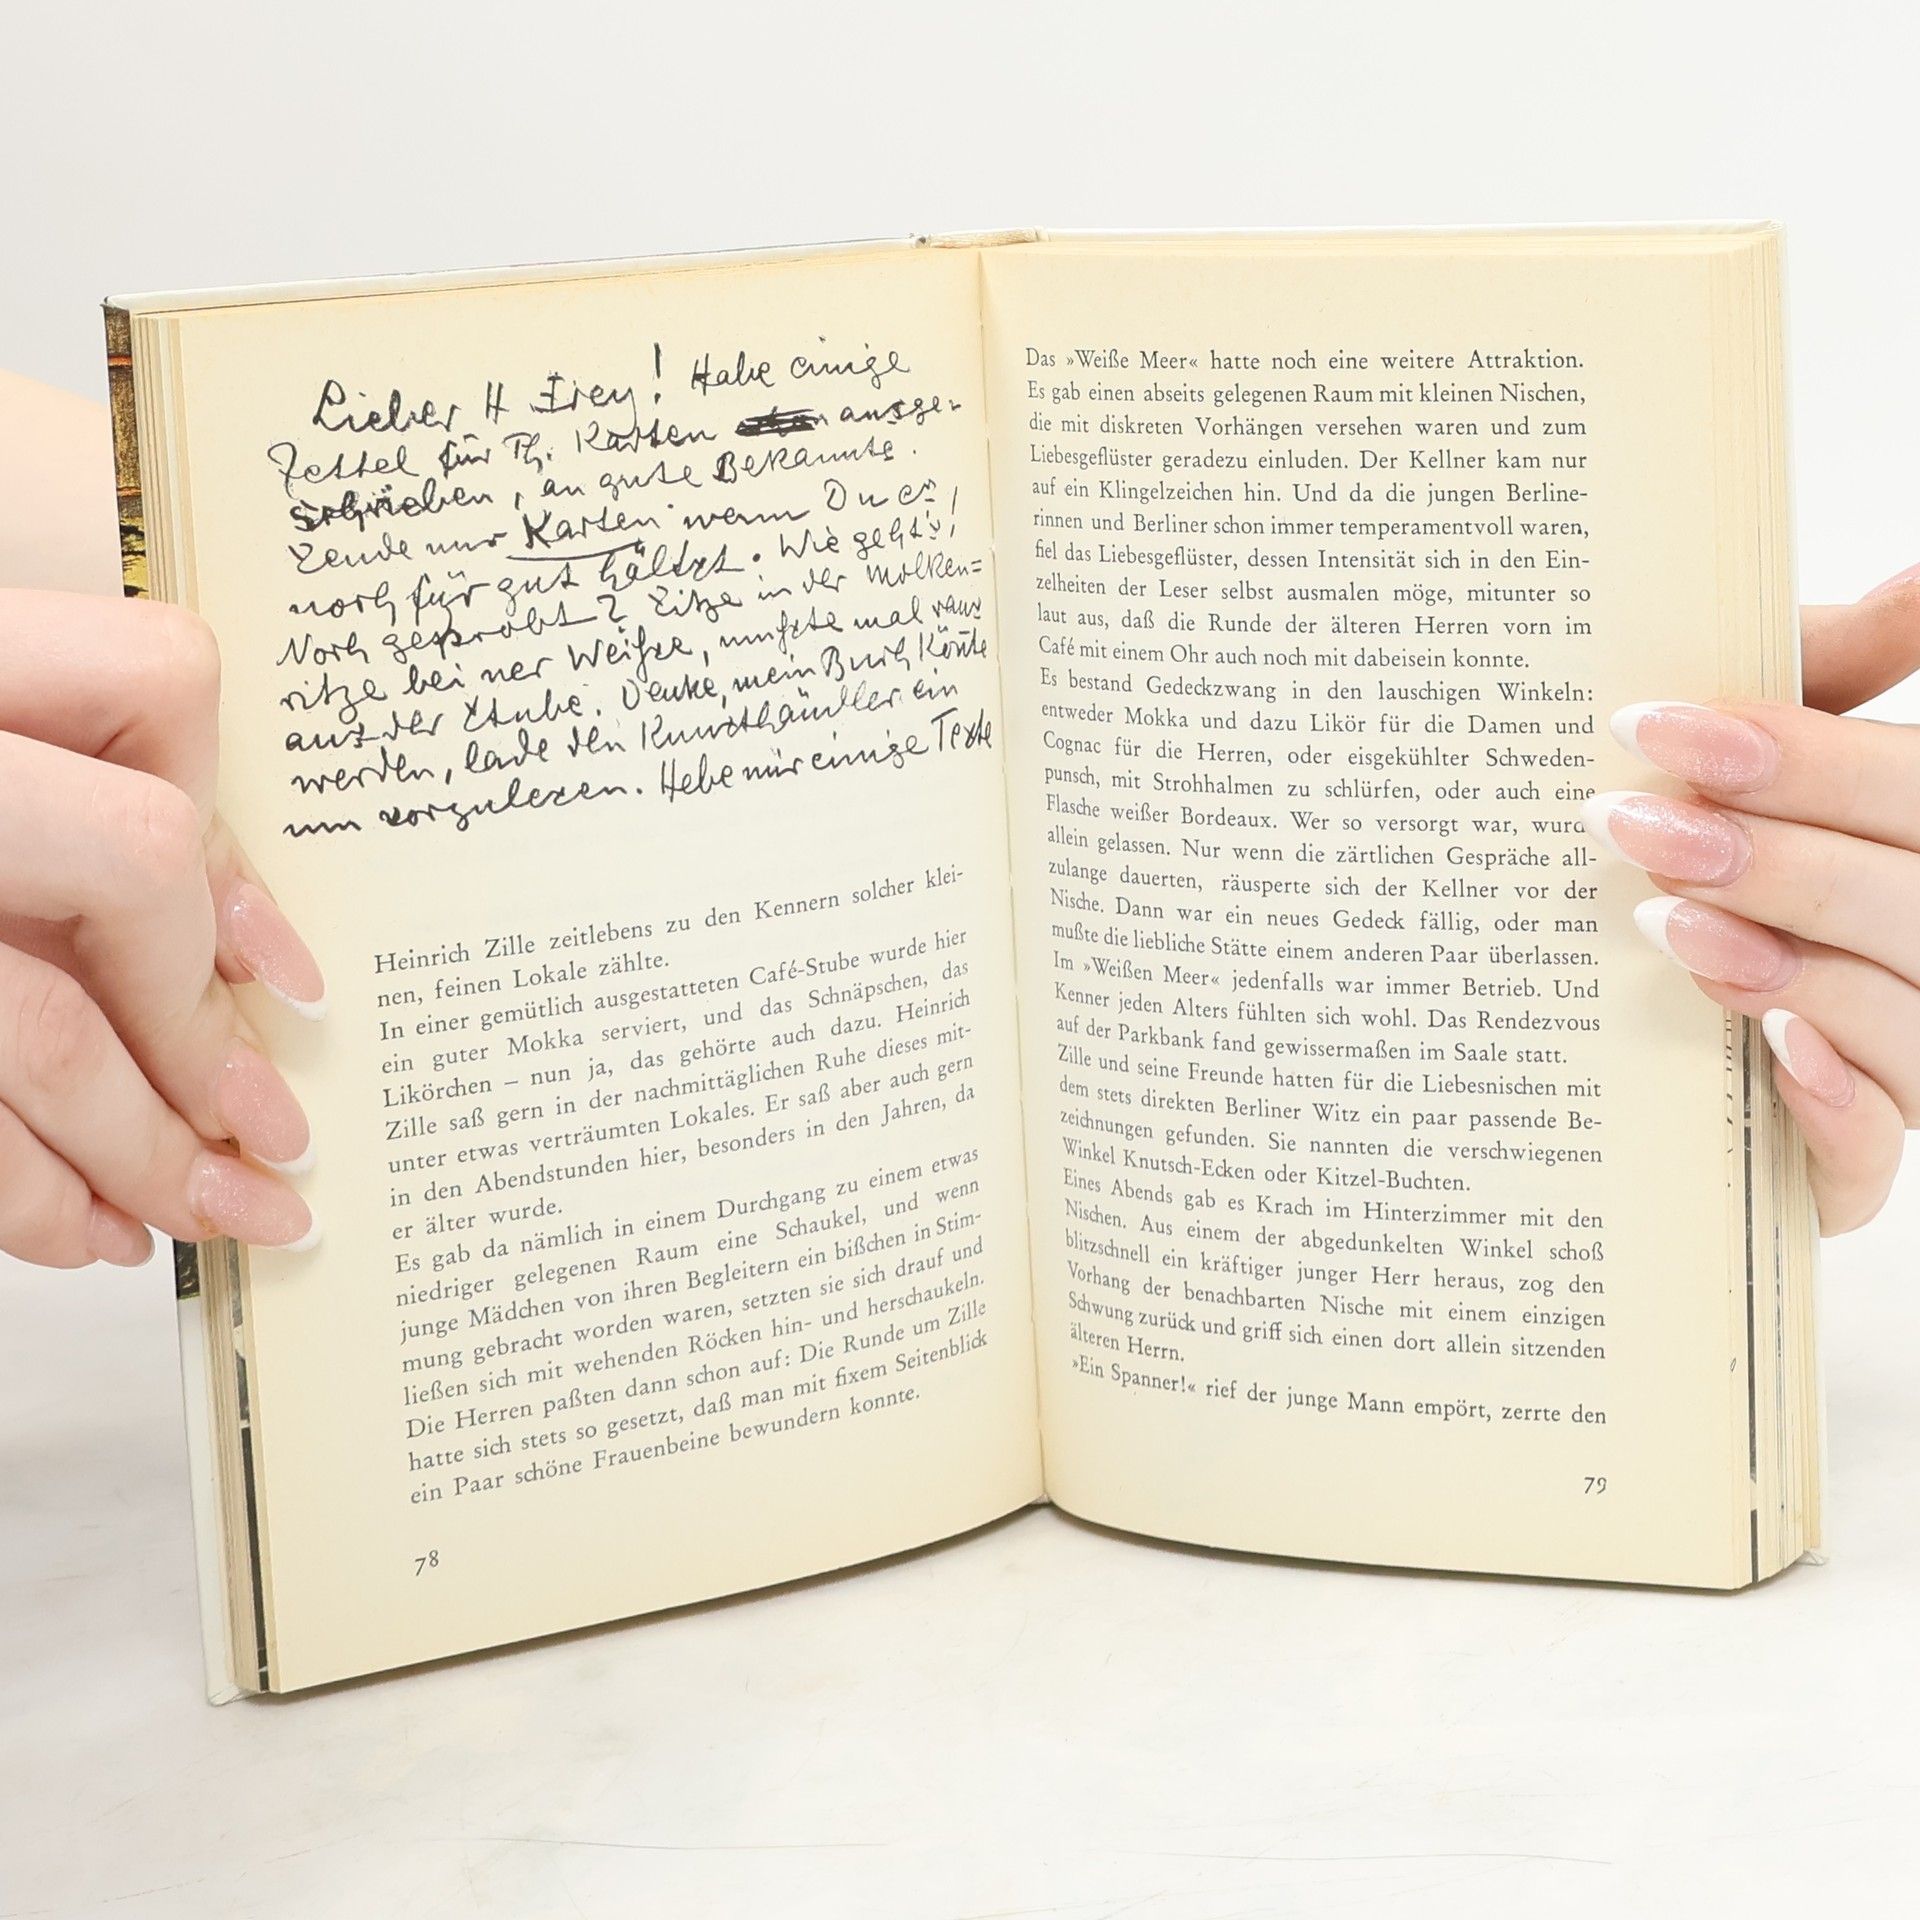 Lieber H Frey! Habe einige
Zettel für Th. Karten ausge-
schrieben, an gute Bekannte.
Sende nur Karten wenn Du es
noch für gut hältst. Wie geht's!
Noch geprobt? Sitze in der Molken=
ritze bei ner Weiße, mußte mal raus
aus der Stube. Denke, mein Buch könte
werden, lade den Kunsthändler ein
um vorzulesen. Hebe mir einige Texte
Heinrich Zille zeitlebens zu den Kennern solcher klei-
nen, feinen Lokale zählte.
In einer gemütlich ausgestatteten Café-Stube wurde hier
ein guter Mokka serviert, und das Schnäpschen, das
Likörchen – nun ja, das gehörte auch dazu. Heinrich
Zille saß gern in der nachmittäglichen Ruhe dieses mit-
unter etwas verträumten Lokales. Er saß aber auch gern
in den Abendstunden hier, besonders in den Jahren, da
er älter wurde.
Es gab da nämlich in einem Durchgang zu einem etwas
niedriger gelegenen Raum eine Schaukel, und wenn
junge Mädchen von ihren Begleitern ein bißchen in Stim-
mung gebracht worden waren, setzten sie sich drauf und
ließen sich mit wehenden Röcken hin- und herschaukeln.
Die Herren paßten dann schon auf: Die Runde um Zille
hatte sich stets so gesetzt, daß man mit fixem Seitenblick
ein Paar schöne Frauenbeine bewundern konnte.
78
Das »Weiße Meer« hatte noch eine weitere Attraktion.
Es gab einen abseits gelegenen Raum mit kleinen Nischen,
die mit diskreten Vorhängen versehen waren und zum
Liebesgeflüster geradezu einluden. Der Kellner kam nur
auf ein Klingelzeichen hin. Und da die jungen Berline-
rinnen und Berliner schon immer temperamentvoll waren,
fiel das Liebesgeflüster, dessen Intensität sich in den Ein-
zelheiten der Leser selbst ausmalen möge, mitunter so
laut aus, daß die Runde der älteren Herren vorn im
Café mit einem Ohr auch noch mit dabeisein konnte.
Es bestand Gedeckzwang in den lauschigen Winkeln:
entweder Mokka und dazu Likör für die Damen und
Cognac für die Herren, oder eisgekühlter Schweden-
punsch, mit Strohhalmen zu schlürfen, oder auch eine
Flasche weißer Bordeaux. Wer so versorgt war, wurd
allein gelassen. Nur wenn die zärtlichen Gespräche all-
zulange dauerten, räusperte sich der Kellner vor der
Nische. Dann war ein neues Gedeck fällig, oder man
mußte die liebliche Stätte einem anderen Paar überlassen.
Im »Weißen Meer« jedenfalls war immer Betrieb. Und
Kenner jeden Alters fühlten sich wohl. Das Rendezvous
auf der Parkbank fand gewissermaßen im Saale statt.
Zille und seine Freunde hatten für die Liebesnischen mit
dem stets direkten Berliner Witz ein paar passende Be-
zeichnungen gefunden. Sie nannten die verschwiegenen
Winkel Knutsch-Ecken oder Kitzel-Buchten.
Eines Abends gab es Krach im Hinterzimmer mit den
Nischen. Aus einem der abgedunkelten Winkel schoß
blitzschnell ein kräftiger junger Herr heraus, zog den
Vorhang der benachbarten Nische mit einem einzigen
Schwung zurück und griff sich einen dort allein sitzenden
älteren Herrn.
»Ein Spanner!« rief der junge Mann empört, zerrte den
79